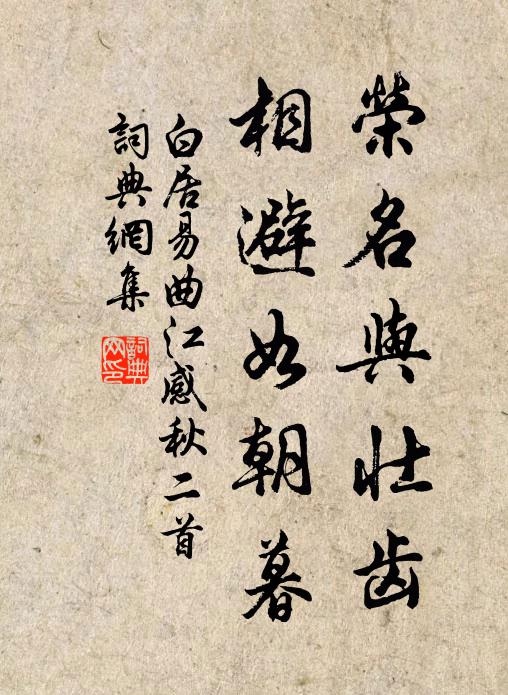 榮名與壯齿
相避如朝暮
白居易曲江感秋二首
詞典網集
詞典网印